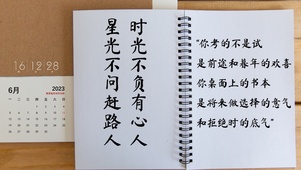 16 12 28
6月
2023
时光不负有心人
星光不问赶路人
"你考的不是试
是前途和暮年的欢喜
你桌面上的书本
是将来做选择的意气
和拒绝时的底气"